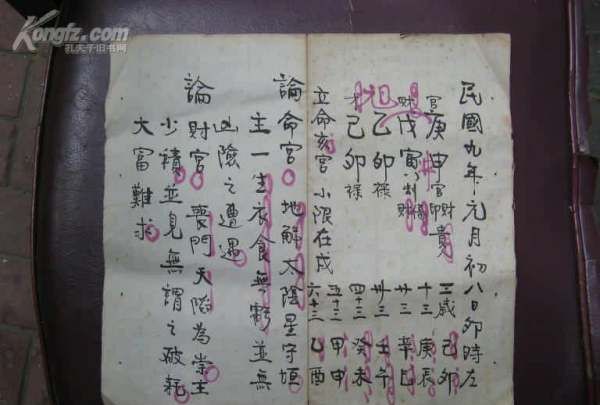 Kongfz.com
孔夫子旧书网
民國九年元月初八日卯時
官 庚申 官財貴
財 戊寅 劫財
乙卯 祿
才 己卯 祿
三歲 己卯
十三 庚辰
廿三 辛巳
卅三 壬午
四十三 癸未
五十三 甲申
六十三 乙酉
立命亥宮 小限在戌
論命宮 地解太陰星守垣
主一生衣食無虧並無
凶險之遭遇
論財宮 喪門天陷為祟主
少積並見無謂之破耗
大富難求